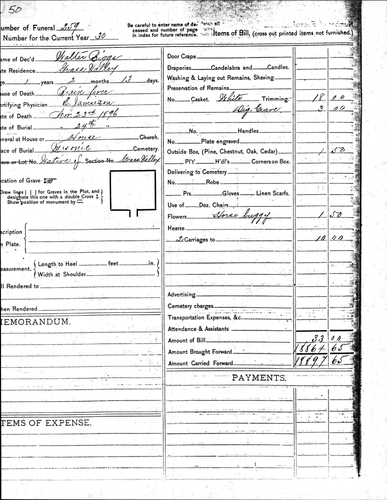 50
Number of Funeral 259
Number for the Current Year 30
Be careful to enter name of dec-
ceased and number of page
in index for future reference.
Items of Bill, (cross out printed items not furnished.)
Name of Dec'd Walter Biggs
Late Residence Grass Valley
1 years 2 months 13 days.
Cause of Death Brain fever
Certifying Physician E. Jamieson
Date of Death Nov. 23rd 1896
Date of Burial " 24th "
Funeral at House or House Church.
Place of Burial Masonic Cemetery.
Grave or Lot No. Native of Section No. Grass Valley
Location of Grave
Draw lines ( ) for Graves in the Plot, and
designate this one with a double Cross
Show position of monument by
Inscription
on Plate.
Measurement. Length to Heel feet in.
Width at Shoulder
Bill Rendered to
When Rendered
MEMORANDUM.
ITEMS OF EXPENSE.
Door Crape
Draperies Candelabra and Candles.
Washing & Laying out Remains, Shaving
Preservation of Remains
No. Casket. White Trimming. 18 00
Dig Grave 3 00
No. Handles
Plate engraved
Outside Box, (Pine, Chestnut, Oak, Cedar) 1 50
PIY. H'dl's Corners on Box.
Delivering to Cemetery
No. Robe
Prs. Gloves Linen Scarfs.
Use of Doz. Chairs
Flowers Horse buggy 1 50
Hearse
2 Carriages to 10 00
Advertising
Cemetery charges
Transportation Expenses, &c.
Attendance & Assistants
Amount of Bill 33 00
Amount Brought Forward 18864 65
Amount Carried Forward 18897 65
PAYMENTS.